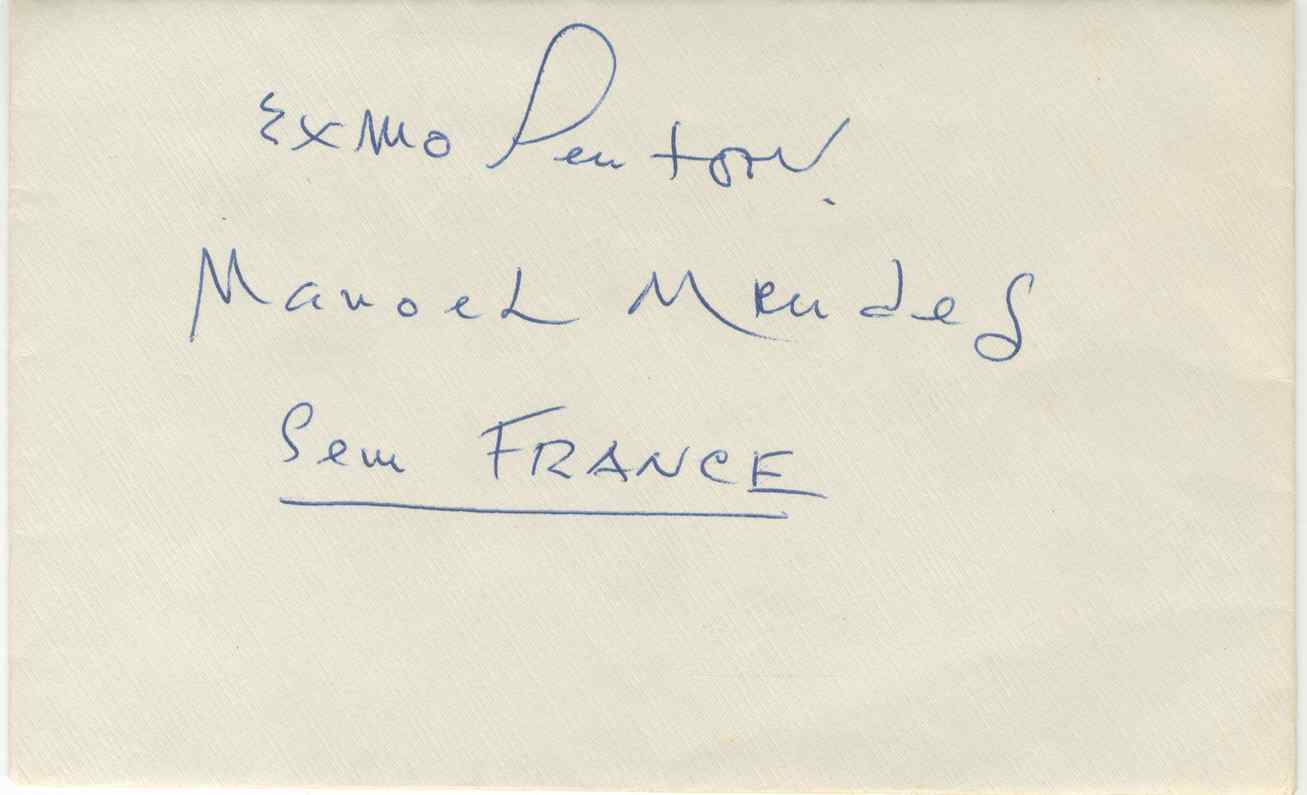 EXMO Pentor.
Manoel Mendes
Sem FRANCE